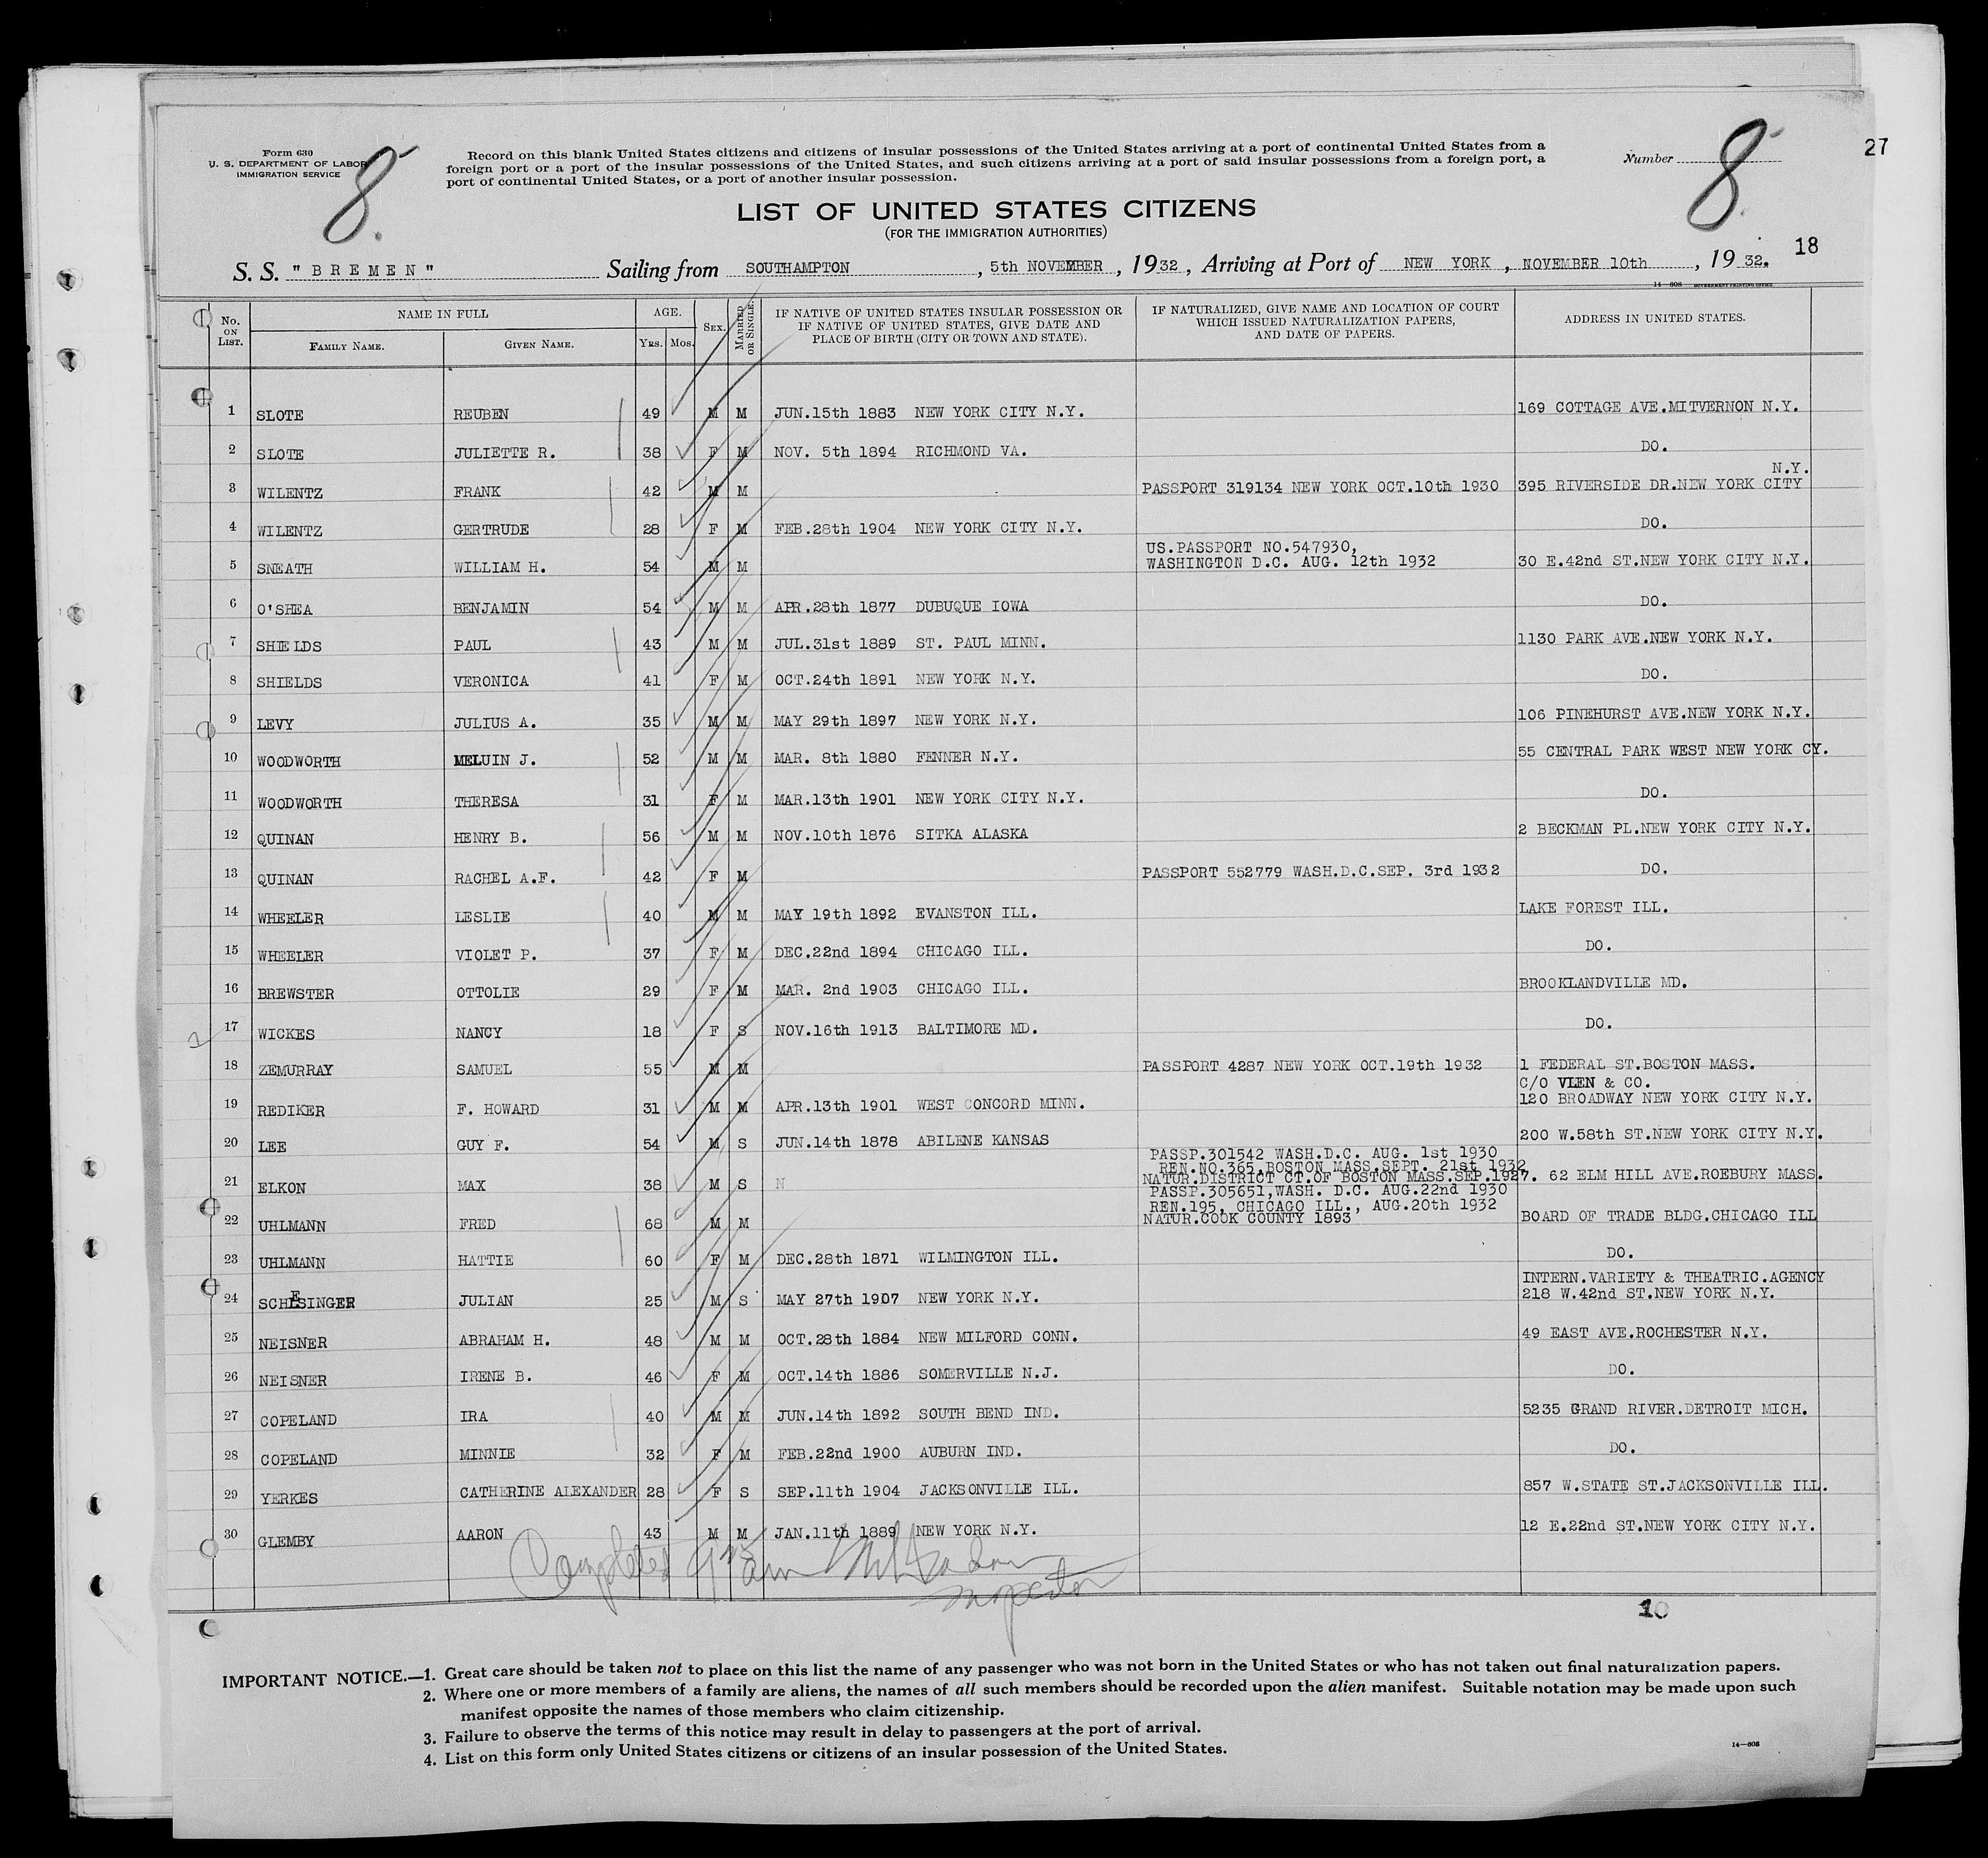 Form 630
U. S. DEPARTMENT OF LABOR
IMMIGRATION SERVICE
8.
Record on this blank United States citizens and citizens of insular possessions of the United States arriving at a port of continental United States from a
foreign port or a port of the insular possessions of the United States, and such citizens arriving at a port of said insular possessions from a foreign port, a
port of continental United States, or a port of another insular possession.
Number 8.
27
LIST OF UNITED STATES CITIZENS
(FOR THE IMMIGRATION AUTHORITIES)
18
S. S. "BREMEN" Sailing from SOUTHAMPTON, 5th NOVEMBER, 1932, Arriving at Port of NEW YORK, NOVEMBER 10th, 1932.
14—608 GOVERNMENT PRINTING OFFICE
No. ON LIST. NAME IN FULL FAMILY NAME. GIVEN NAME. AGE. YRS. MOS. SEX. MARRIED OR SINGLE. IF NATIVE OF UNITED STATES INSULAR POSSESSION OR IF NATIVE OF UNITED STATES, GIVE DATE AND PLACE OF BIRTH (CITY OR TOWN AND STATE). IF NATURALIZED, GIVE NAME AND LOCATION OF COURT WHICH ISSUED NATURALIZATION PAPERS, AND DATE OF PAPERS. ADDRESS IN UNITED STATES.
1 SLOTE REUBEN 49 M M JUN.15th 1883 NEW YORK CITY N.Y. 169 COTTAGE AVE.MITVERNON N.Y.
2 SLOTE JULIETTE R. 38 F M NOV. 5th 1894 RICHMOND VA. DO.
N.Y.
3 WILENTZ FRANK 42 M M PASSPORT 319134 NEW YORK OCT.10th 1930 395 RIVERSIDE DR.NEW YORK CITY
4 WILENTZ GERTRUDE 28 F M FEB.28th 1904 NEW YORK CITY N.Y. DO.
US.PASSPORT NO.547930,
5 SNEATH WILLIAM H. 54 M M WASHINGTON D.C. AUG. 12th 1932 30 E.42nd ST.NEW YORK CITY N.Y.
6 O'SHEA BENJAMIN 54 M M APR.28th 1877 DUBUQUE IOWA DO.
7 SHIELDS PAUL 43 M M JUL.31st 1889 ST. PAUL MINN. 1130 PARK AVE.NEW YORK N.Y.
8 SHIELDS VERONICA 41 F M OCT.24th 1891 NEW YORK N.Y. DO.
9 LEVY JULIUS A. 35 M M MAY 29th 1897 NEW YORK N.Y. 106 PINEHURST AVE.NEW YORK N.Y.
10 WOODWORTH MELUIN J. 52 M M MAR. 8th 1880 FENNER N.Y. 55 CENTRAL PARK WEST NEW YORK CY.
11 WOODWORTH THERESA 31 F M MAR.13th 1901 NEW YORK CITY N.Y. DO.
12 QUINAN HENRY B. 56 M M NOV.10th 1876 SITKA ALASKA 2 BECKMAN PL.NEW YORK CITY N.Y.
13 QUINAN RACHEL A.F. 42 F M PASSPORT 552779 WASH.D.C.SEP. 3rd 1932 DO.
14 WHEELER LESLIE 40 M M MAY 19th 1892 EVANSTON ILL. LAKE FOREST ILL.
15 WHEELER VIOLET P. 37 F M DEC.22nd 1894 CHICAGO ILL. DO.
16 BREWSTER OTTOLIE 29 F M MAR. 2nd 1903 CHICAGO ILL. BROOKLANDVILLE MD.
17 WICKES NANCY 18 F S NOV.16th 1913 BALTIMORE MD. DO.
18 ZEMURRAY SAMUEL 55 M M PASSPORT 4287 NEW YORK OCT.19th 1932 1 FEDERAL ST.BOSTON MASS.
C/O VLEN & CO.
19 REDIKER F. HOWARD 31 M M APR.13th 1901 WEST CONCORD MINN. 120 BROADWAY NEW YORK CITY N.Y.
20 LEE GUY F. 54 M S JUN.14th 1878 ABILENE KANSAS 200 W.58th ST.NEW YORK CITY N.Y.
PASSP.301542 WASH.D.C. AUG. 1st 1930
REN.NO.365,BOSTON MASS.SEPT. 21st 1932
21 ELKON MAX 38 M S N NATUR.DISTRICT CT.OF BOSTON MASS.SEP.1927. 62 ELM HILL AVE.ROEBURY MASS.
PASSP.305651,WASH. D.C. AUG.22nd 1930
REN.195, CHICAGO ILL., AUG.20th 1932
22 UHLMANN FRED 68 M M NATUR.COOK COUNTY 1893 BOARD OF TRADE BLDG.CHICAGO ILL
23 UHLMANN HATTIE 60 F M DEC.28th 1871 WILMINGTON ILL. DO.
INTERN.VARIETY & THEATRIC.AGENCY
24 SCHESINGER JULIAN 25 M S MAY 27th 1907 NEW YORK N.Y. 218 W.42nd ST.NEW YORK N.Y.
25 NEISNER ABRAHAM H. 48 M M OCT.28th 1884 NEW MILFORD CONN. 49 EAST AVE.ROCHESTER N.Y.
26 NEISNER IRENE B. 46 F M OCT.14th 1886 SOMERVILLE N.J. DO.
27 COPELAND IRA 40 M M JUN.14th 1892 SOUTH BEND IND. 5235 GRAND RIVER.DETROIT MICH.
28 COPELAND MINNIE 32 F M FEB.22nd 1900 AUBURN IND. DO.
29 YERKES CATHERINE ALEXANDER 28 F S SEP.11th 1904 JACKSONVILLE ILL. 857 W.STATE ST.JACKSONVILLE ILL.
30 GLEMBY AARON 43 M M JAN.11th 1889 NEW YORK N.Y. 12 E.22nd ST.NEW YORK CITY N.Y.
Completed
Inspector
10
IMPORTANT NOTICE.—1. Great care should be taken not to place on this list the name of any passenger who was not born in the United States or who has not taken out final naturalization papers.
2. Where one or more members of a family are aliens, the names of all such members should be recorded upon the alien manifest. Suitable notation may be made upon such
manifest opposite the names of those members who claim citizenship.
3. Failure to observe the terms of this notice may result in delay to passengers at the port of arrival.
4. List on this form only United States citizens or citizens of an insular possession of the United States.
14—608